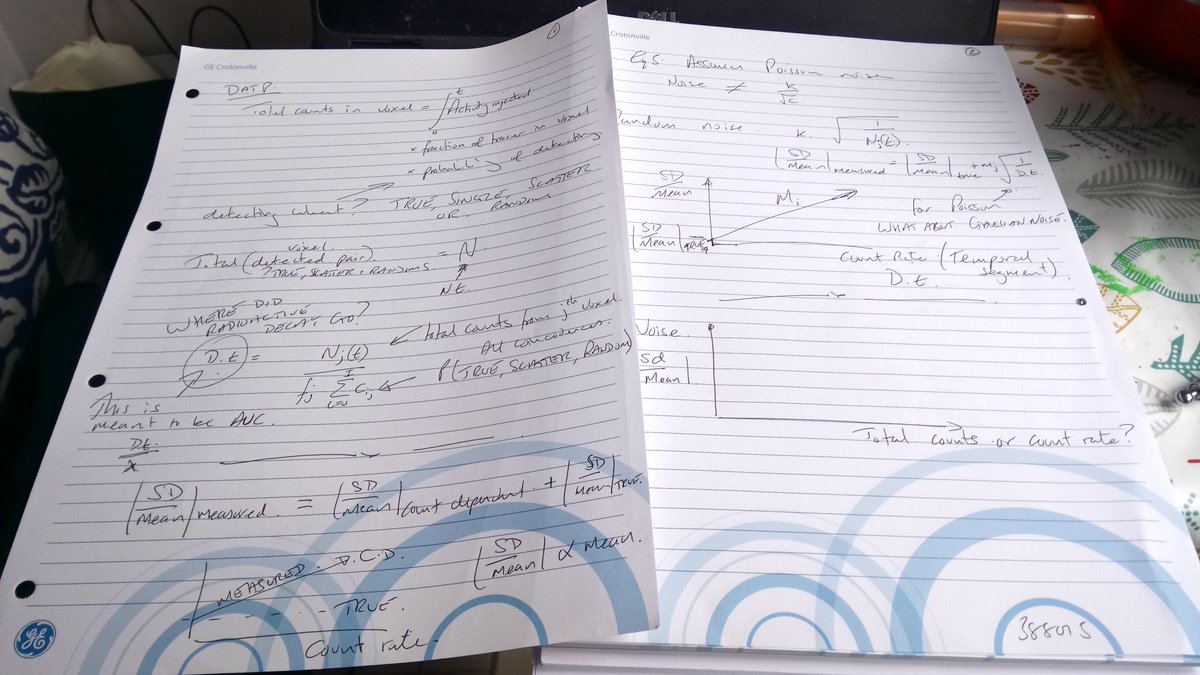 DELL
GE Crotonville
1
DATP.
Total counts in voxel = ∫ Activity injected
t
0
× fraction of tracer in voxel
× probability of detecting
detecting what? TRUE, SINGLE, SCATTER
OR RANDOM
voxel.
Total (detected pair) = N.
?TRUE, SCATTER, RANDOMS.
Nt.
WHERE DID
RADIOACTIVE
DECAY GO?
D.t = Nj(t) / fj Σ Cij
total counts from jth voxel.
All coincidences.
P(TRUE, SCATTER, RANDOM)
This is
meant to be AUC.
Dt.
λ.
|SD/Mean| measured. = |SD/Mean| count dependent. + |SD/Mean| TRUE.
MEASURED.
C.D.
|SD/Mean| α Mean.
TRUE.
Count rate
GE
Crotonville
2
Eq 5. Assumes Poisson noise
Noise ≠ k/√c.
Random noise. k. √1/Nj(t).
|SD/Mean| measured = |SD/Mean| true + Mj √1/D.t.
SD/Mean
Mj
for Poisson
WHAT ABOUT GAUSSIAN NOISE.
|SD/Mean| TRUE
Count Rate (Temporal
segment).
D.t.
Noise.
|Sd/Mean|
Total counts or count rate?